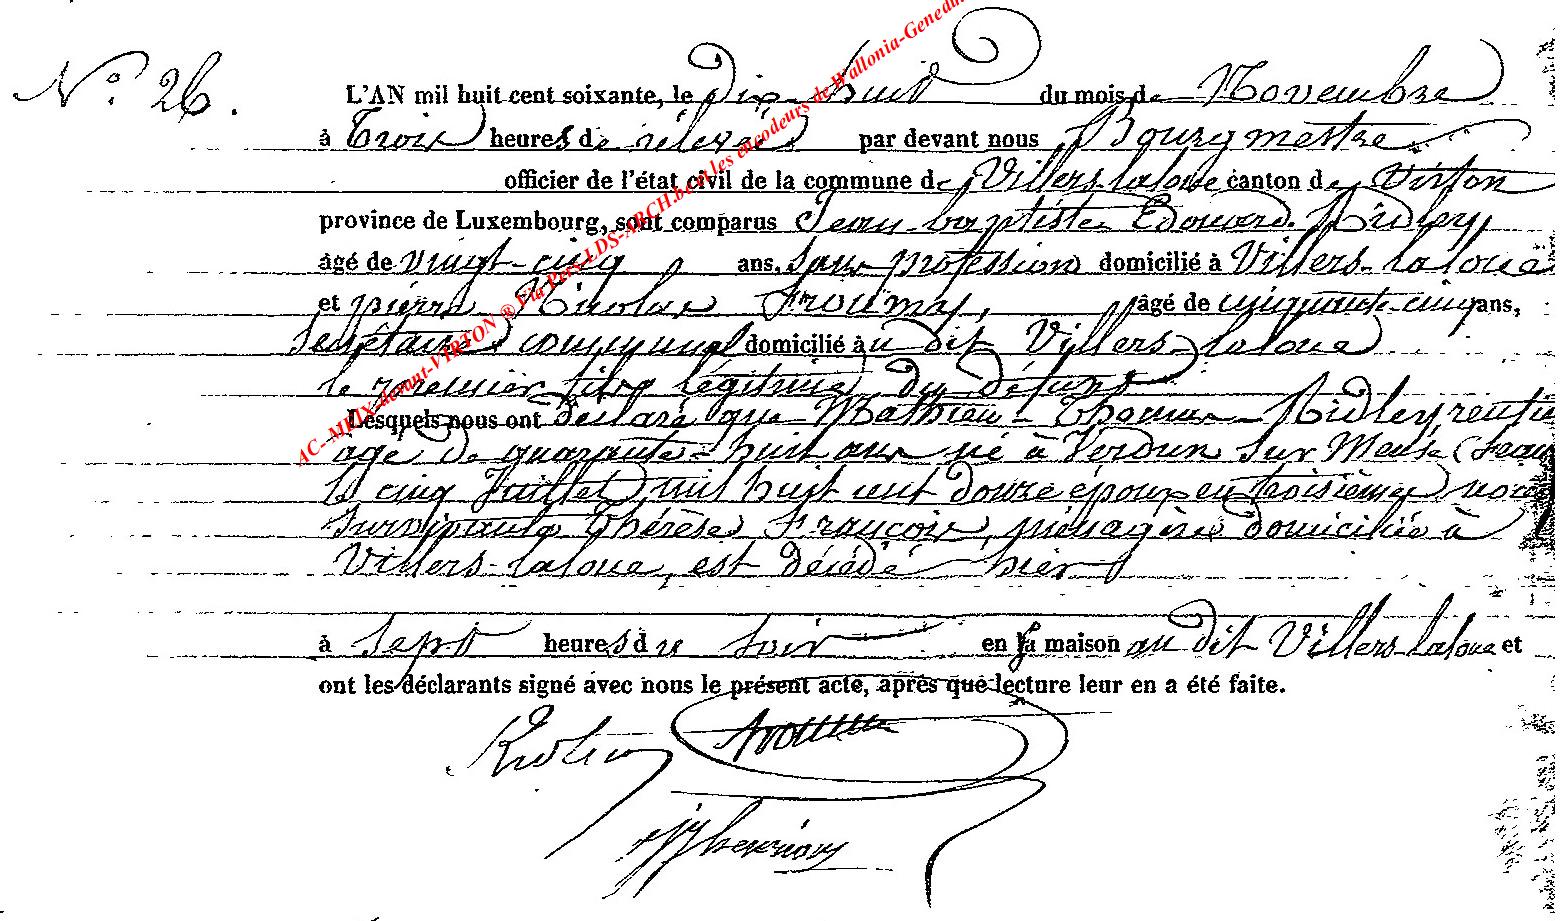 N° 26.
L'AN mil huit cent soixante, le dix-huit du mois de Novembre
à trois heures de relevée par devant nous Bourgmestre
officier de l'état civil de la commune de Villers-laloue canton de Virton
province de Luxembourg, sont comparus Jean-baptiste Edouard Ridley
âgé de vingt-cinq ans, sans profession domicilié à Villers-laloue
et pierre Nicolas Froumy, âgé de cinquante-cinq ans,
Secrétaire communal domicilié àu dit Villers-laloue
le premier fils légitime du défunt
Lesquels nous ont déclaré que Mathieu-Thomas-Ridley rentier
âgé de quarante-huit ans né à Verdun sur Meuse
le cinq Juillet mil huit cent douze époux en troisième noce
Survivante Thérèse François, ménagère domiciliée à
Villers-laloue, est décédé hier
à Sept heures du Soir en sa maison au dit Villers-laloue et
ont les déclarants signé avec nous le présent acte, après que lecture leur en a été faite.
AC-MEIX-devant-VIRTON ® Via Pers-LDS-ARCH.be et les encodeurs de Wallonia-Genealo